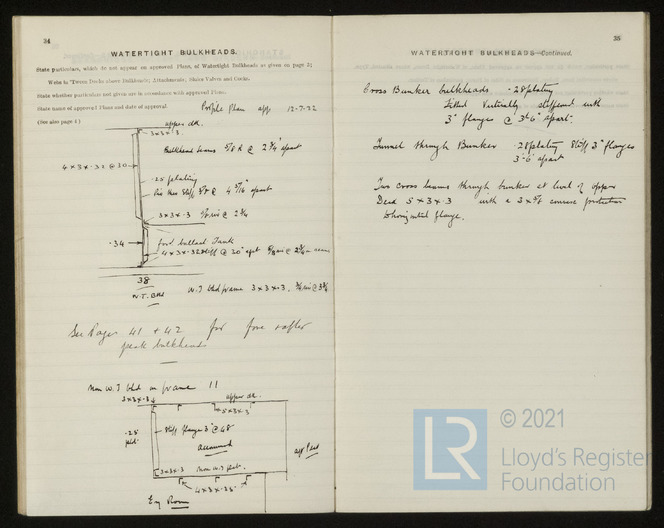 34
WATERTIGHT BULKHEADS.
State particulars, which do not appear on approved Plans, of Watertight Bulkheads as given on page 2;
Webs in 'Tween Decks above Bulkheads; Attachments; Sluice Valves and Cocks.
State whether particulars not given are in accordance with approved Plans.
State name of approved Plans and date of approval. Profile Plan app 12-7-22
(See also page 4)
upper dk.
3×3×·3
Bulkhead seams 5/8 R @ 2 3/4" apart
4×3×·32 @ 30
·25 plating
4 5/16 apart
3×3×·3 @ 2 3/4
·34
Tank
4×3×·32 stiff @ 30" apart
38
W.T. Bhd
W.T. bhd frame 3×3×·3.
See Pages 41 + 42 for fore & after
peak bulkheads
Non W.T bhd on frame 11
3×3×·34 upper dk.
5×3×·3
·25
stiff flange 3" @ 48"
3×3×·3 Non W.T flat.
aft
4×3×·35
Eng Room
35
WATERTIGHT BULKHEADS—Continued.
Cross Bunker bulkheads ·28 plating
fitted vertically stiffened with
3" flanges @ 3'-6" apart.
Tunnel through Bunker ·28 plating stiff 3" flanges
3'-6" apart
Two cross beams through bunker at level of upper
Deck 5×3×·3 with a 3 ×
horizontal flange.
LR
© 2021
Lloyd's Register
Foundation